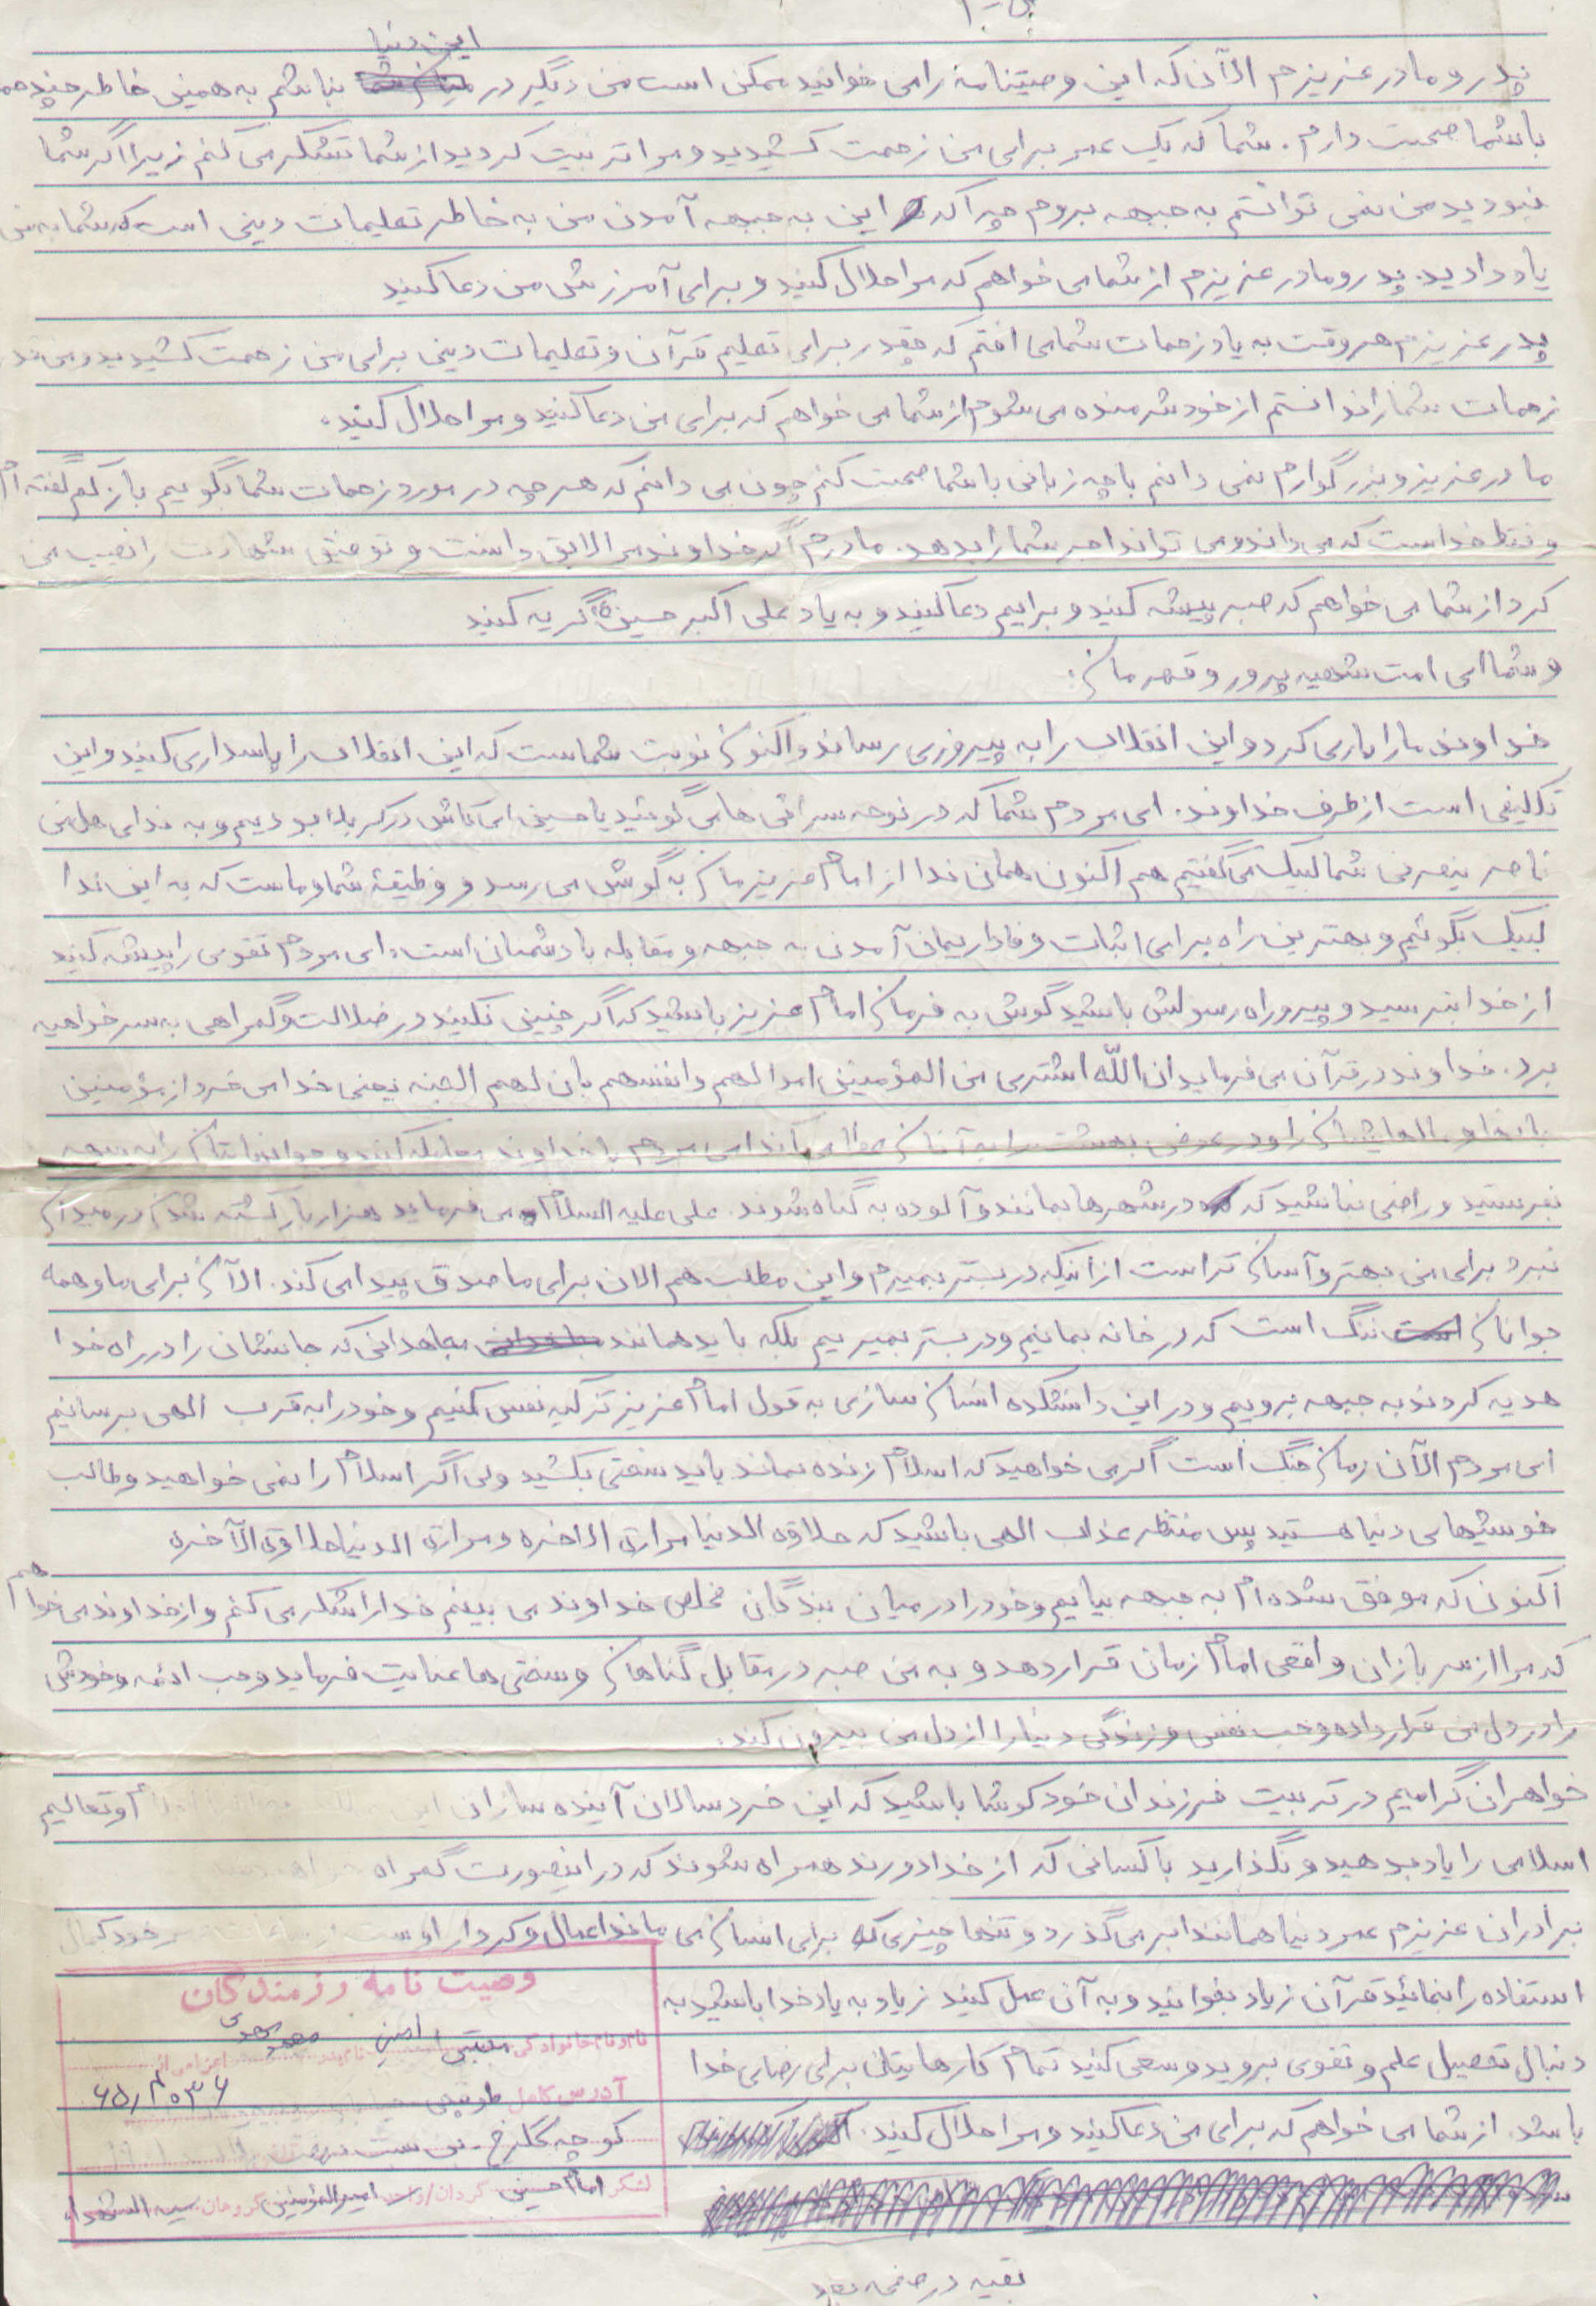 این دنیا
پدر و مادر عزیزم الآن که این وصیتنامه را می خوانید ممکن است من دیگر در نباشم به همین خاطر چند
با شما صحبت دارم. شما که یک عمر برای من زحمت کشیدید و مرا تربیت کردید از شما تشکر می کنم زیرا اگر شما
نبودید من نمی توانستم به جبهه بروم چرا که این به جبهه آمدن من به خاطر تعلیمات دینی است که شما به من
یاد دادید. پدر و مادر عزیزم از شما می خواهم که مرا حلال کنید و برای آمرزش من دعا کنید
پدر عزیزم هر وقت به یاد زحمات شما می افتم که چقدر برای تعلیم قرآن و تعلیمات دینی برای من زحمت کشیدید و من قدر
زحمات شما را ندانستم از خود شرمنده می شوم از شما می خواهم که برای من دعا کنید و مرا حلال کنید.
مادر عزیز و بزرگوارم نمی دانم با چه زبانی با شما صحبت کنم چون می دانم که هر چه در مورد زحمات شما بگویم باز کم گفته ام
و فقط خداست که می داند و می تواند اجر شما را بدهد. مادرم اگر خداوند مرا لایق دانست و توفیق شهادت را نصیب من
کرد از شما می خواهم که صبر پیشه کنید و برایم دعا کنید و به یاد علی اکبر حسین (ع) گریه کنید
و شما ای امت شهید پرور و قهرمان:
خداوند ما را یاری کرد و این انقلاب را به پیروزی رساند و اکنون نوبت شماست که این انقلاب را پاسداری کنید و این
تکلیفی است از طرف خداوند. ای مردم شما که در نوحه سرائی ها می گوئید یا حسین ای کاش در کربلا بودیم و به ندای هل من
ناصر ینصرنی شما لبیک می گفتیم هم اکنون همان ندا از امام عزیزمان به گوش می رسد و وظیفۀ شما و ماست که به این ندا
لبیک بگوئیم و بهترین راه برای اثبات وفاداریمان آمدن به جبهه و مقابله با دشمنان است. ای مردم تقوی را پیشه کنید
از خدا بترسید و پیرو راه رسولش باشید گوش به فرمان امام عزیز باشید که اگر چنین نکنید در ضلالت و گمراهی به سر خواهید
برد. خداوند در قرآن می فرماید ان الله اشتری من المؤمنین اموالهم و انفسهم بان لهم الجنه یعنی خدا می خرد از مؤمنین
را و در عوض بهشت را به آنان عطا می کند ای مردم با خداوند معامله کنید و جوانهایتان را به جبهه
بفرستید و راضی نباشید که در شهرها بمانند و آلوده به گناه شوند. علی علیه السلام می فرماید هزار بار کشته شدن در میدان
نبرد برای من بهتر و آسان تر است از اینکه در بستر بمیرم و این مطلب هم الان برای ما صدق پیدا می کند. الآن برای ما و همه
جوانان ننگ است که در خانه بمانیم و در بستر بمیریم بلکه باید همانند مجاهدانی که جانشان را در راه خدا
هدیه کردند به جبهه برویم و در این دانشکده انسان سازی به قول امام عزیز تزکیه نفس کنیم و خود را به قرب الهی برسانیم
ای مردم الآن زمان جنگ است اگر می خواهید که اسلام زنده بماند باید سختی بکشید ولی اگر اسلام را نمی خواهید و طالب
خوشیهای دنیا هستید پس منتظر عذاب الهی باشید که حلاوه الدنیا مرارة الاخره و مرارة الدنیا حلاوة الآخره
اکنون که موفق شده ام به جبهه بیایم و خود را در میان بندگان مخلص خداوند می بینم خدا را شکر می کنم و از خداوند می خواهم
که مرا از سربازان واقعی امام زمان قرار دهد و به من صبر در مقابل گناهان و سختی ها عنایت فرماید و حب ائمه و خودش
را در دل من قرار داده و حب نفس و زندگی دنیا را از دل من بیرون کند.
خواهران گرامیم در تربیت فرزندان خود کوشا باشید که این خردسالان آینده سازان و تعالیم
اسلامی را یاد بدهید و نگذارید با کسانی که از خدا دورند همراه شوند که در اینصورت گمراه
برادران عزیزم عمر دنیا همانند ابر می گذرد و تنها چیزی که برای انسان می ماند اعمال و کردار اوست خود کمال
استفاده را بنمائید قرآن زیاد بخوانید و به آن عمل کنید زیاد به یاد خدا باشید به
دنبال تحصیل علم و تقوی بروید و سعی کنید تمام کارهایتان برای رضای خدا
باشد. از شما می خواهم که برای من دعا کنید و مرا حلال کنید.
وصیت نامه رزمندگان
نام و نام خانوادگی مجتبی امینی
آدرس کامل طوقچی
کوچه گلرخ - بن بست
لشکر امام حسین گردان/واحد امیرالمؤمنین گروهان سید الشهداء
بقیه در صفحه بعد